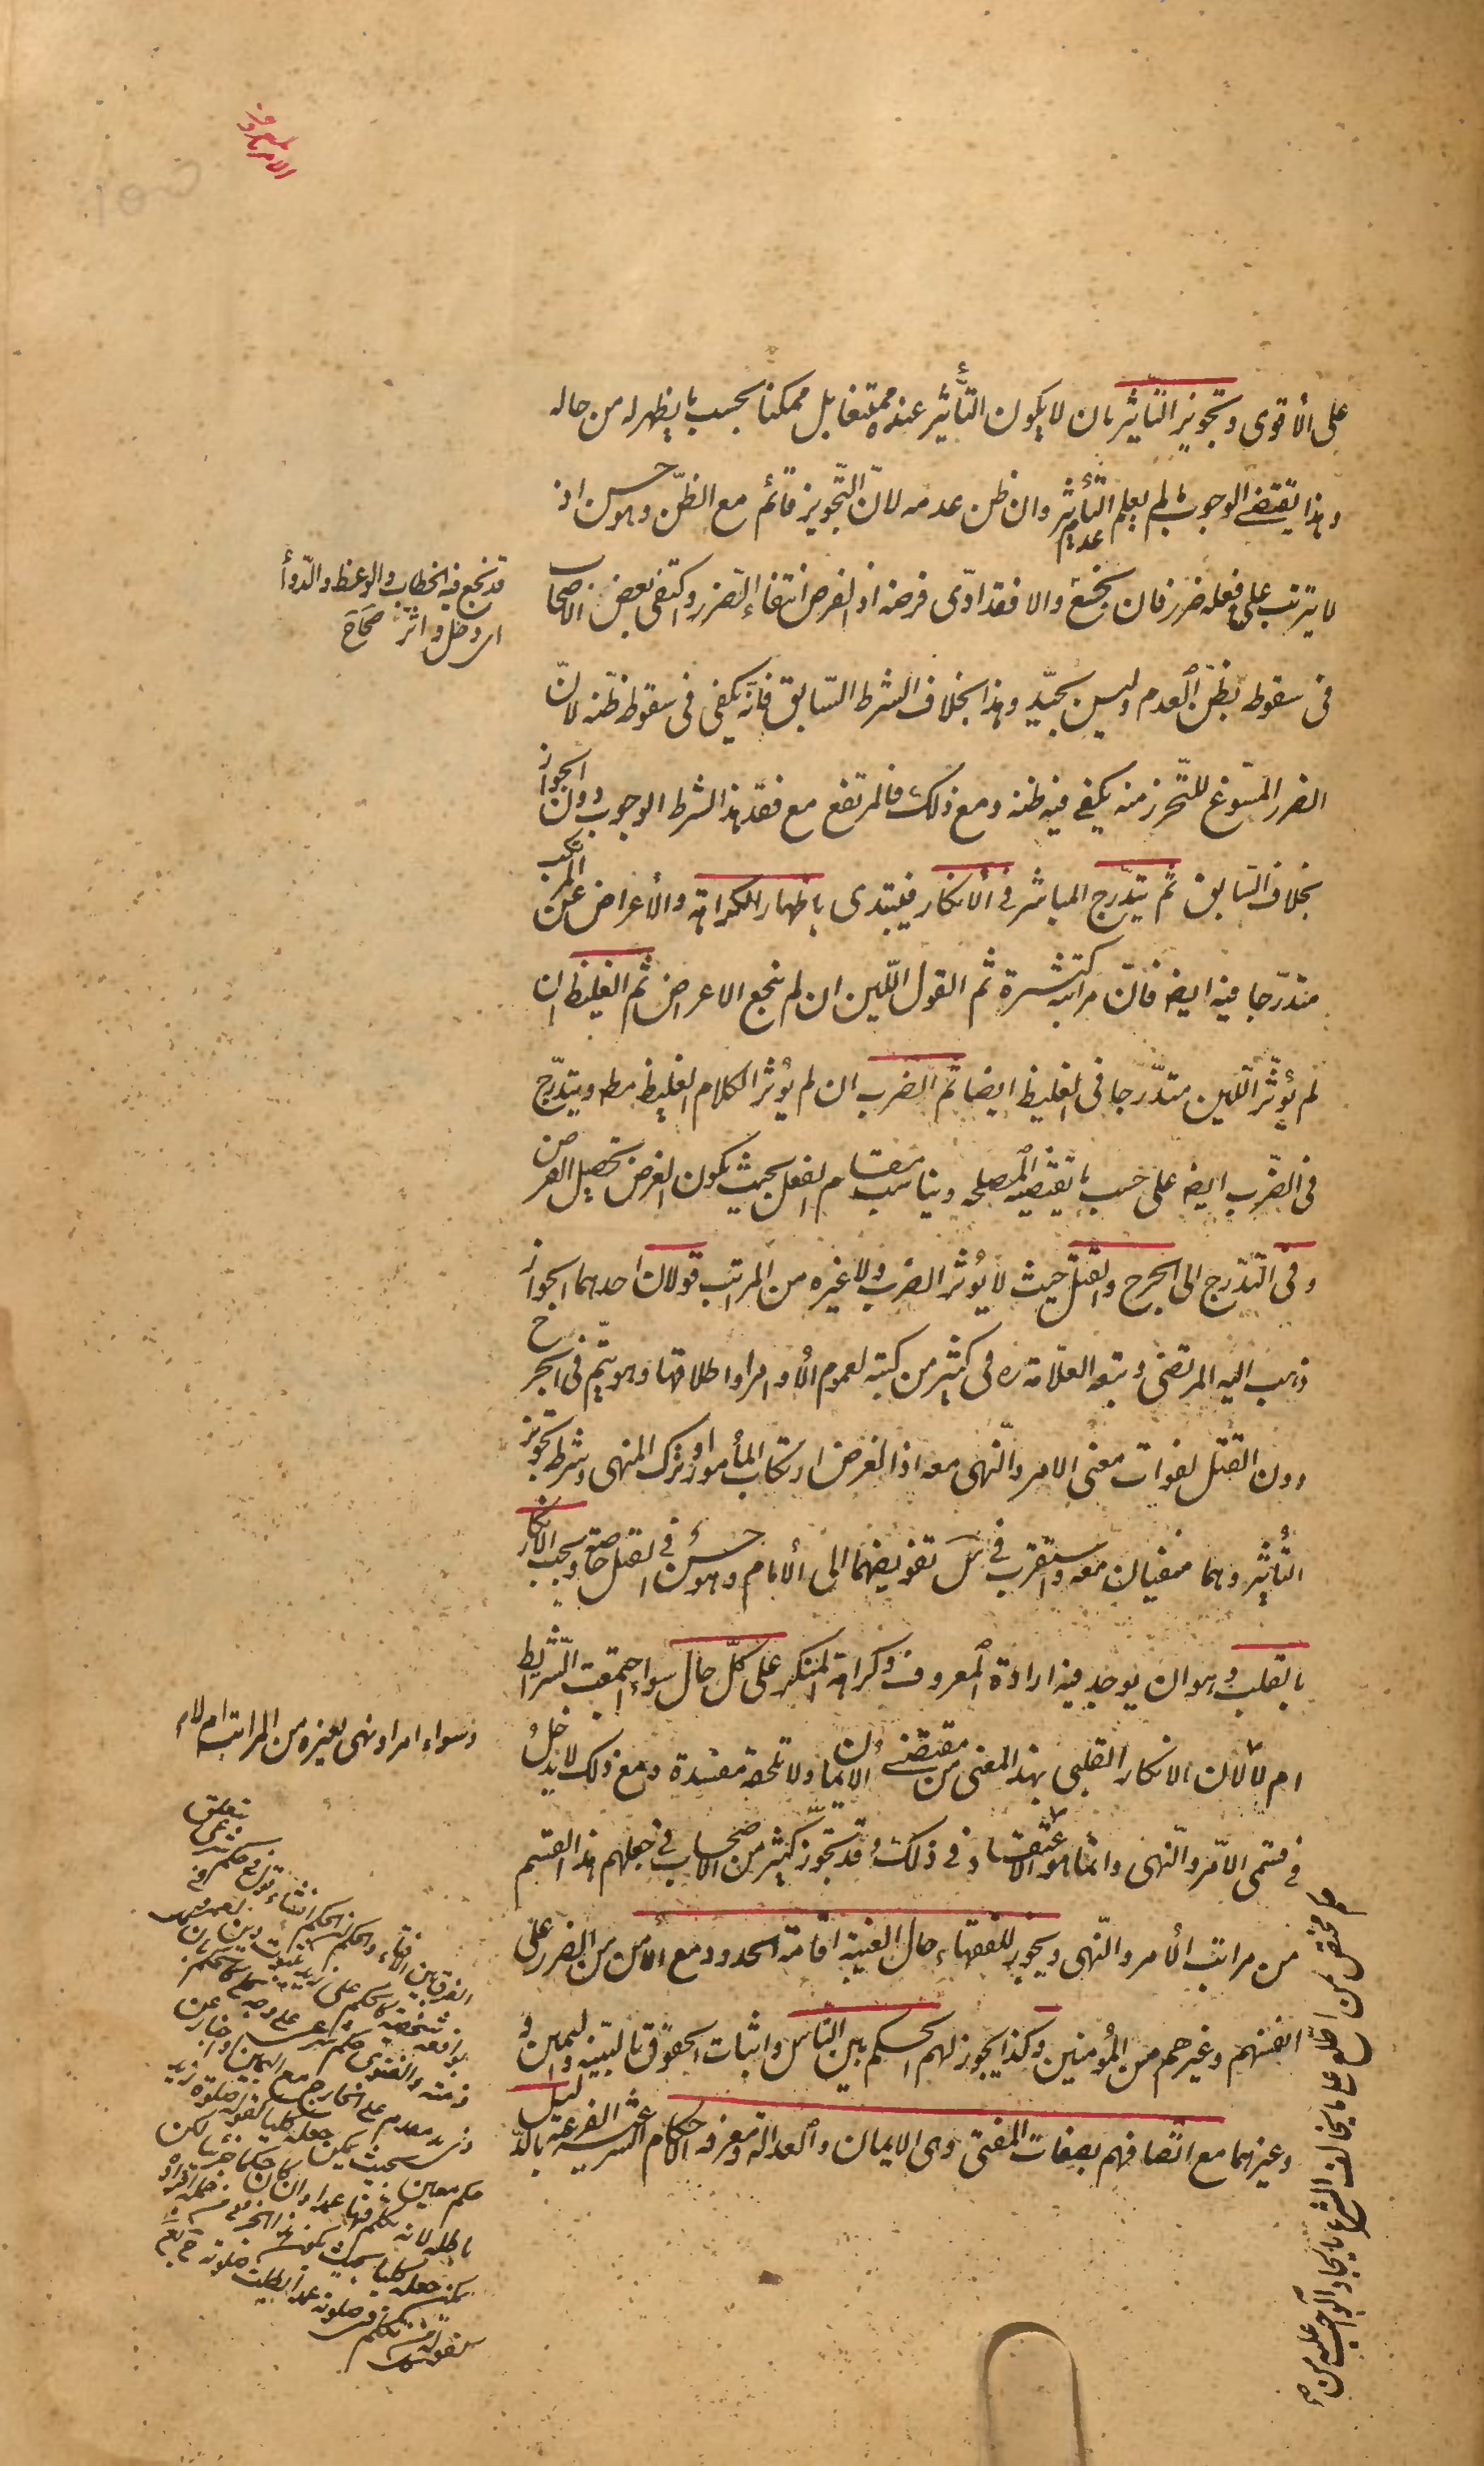 الامر بالمعروف
على الأقوى وتجويز التأثير بان لا يكون التأثير عنده ممتنعا بل ممكنا بحسب ما يظهر له من حاله
وهذا يقتضى الوجوب ما لم يعلم عدم التأثير وان ظن عدمه لانّ التّجويز قائم مع الظنّ وهو حسن اذ
لا يترتب على فعله ضرر فان نجع والا فقد ادّى فرضه اذ الفرض انتفاء الضرر واكتفى بعض الاصحاب
فى سقوطه بظنّ العدم وليس بجيّد وهذا بخلاف الشرط السّابق فانّه يكفى فى سقوطه ظنّه لانّ
الضرر المسوّغ للتّحرز منه يكفى فيه ظنه ومع ذلك فالمرتفع مع فقد هذا الشرط الوجوب دون الجواز
بخلاف السّابق ثم يتدّرج المباشر فى الانكار فيبتدى باظهار الكراهة والأعراض عن المرتكب
متدرّجا فيه ايضا فانّ مراتبه كثيرة ثم القول اللّين ان لم ينجع الاعراض ثم الغليظ ان
لم يؤثّر اللّين متدّرجا فى الغليظ ايضا ثم الضرب ان لم يؤثر الكلام الغليظ مط ويتدّرج
فى الضّرب ايضا على حسب ما تقتضيه المصلحه ويناسب مقام الفعل بحيث يكون الغرض تحصيل الغرض
وفى التدّرج الى الجرح والقتل حيث لا يؤثر الضرب ولا غيره من المراتب قولان احدهما الجواز
ذهب اليه المرتضى وتبعه العلّامة ره فى كثير من كتبه لعموم الأوامر واطلاقها وهو يتّم فى الجرح
دون القتل لفوات معنى الامر والنّهى معه اذ الغرض ارتكاب المأمور او ترك المنهى وشرطه تجويز
التأثير وهما منفيان معه واستقرب فى س تفويضهما الى الأمام وهو حسن فى القتل خاصة ويجب الانكار
بالقلب وهو ان يوجد فيه ارادة المعروف وكراهة المنكر على كلّ حال سواء اجتمعت الشّرايط
ام لا لان الانكار القلبى بهذا المعنى من مقتضى الايمان ولا تلحقه مفسدة ومع ذلك لا يدخل
فى قسمى الامر والنّهى وانّما هو اعتقاد فى ذلك وقد تجّوز كثير من الاصحاب فى جعلهم هذا القسم
من مراتب الأمر والنّهى ويجوز للفقهاء حال الغيبة اقامة الحدود مع الأمن من الضرر على
انفسهم وغيرهم من المؤمنين وكذا يجوز لهم الحكم بين الناس واثبات الحقوق بالبيّنه واليمين و
وغيرهما مع اتّصافهم بصفات المفتى وهى الايمان والعدالة ومعرفة الاحكام الشرعية الفرعية بالدّليل
قد نجع فيه الخطاب والوعظ والدّوأ
اى دخل واثّر صحاح
وسواء امر او نهى بغيره من المراتب ام لا م
الفرق بين الافتاء والحكم ان الحكم انشاء قول فى حكم شرعى يتعلق